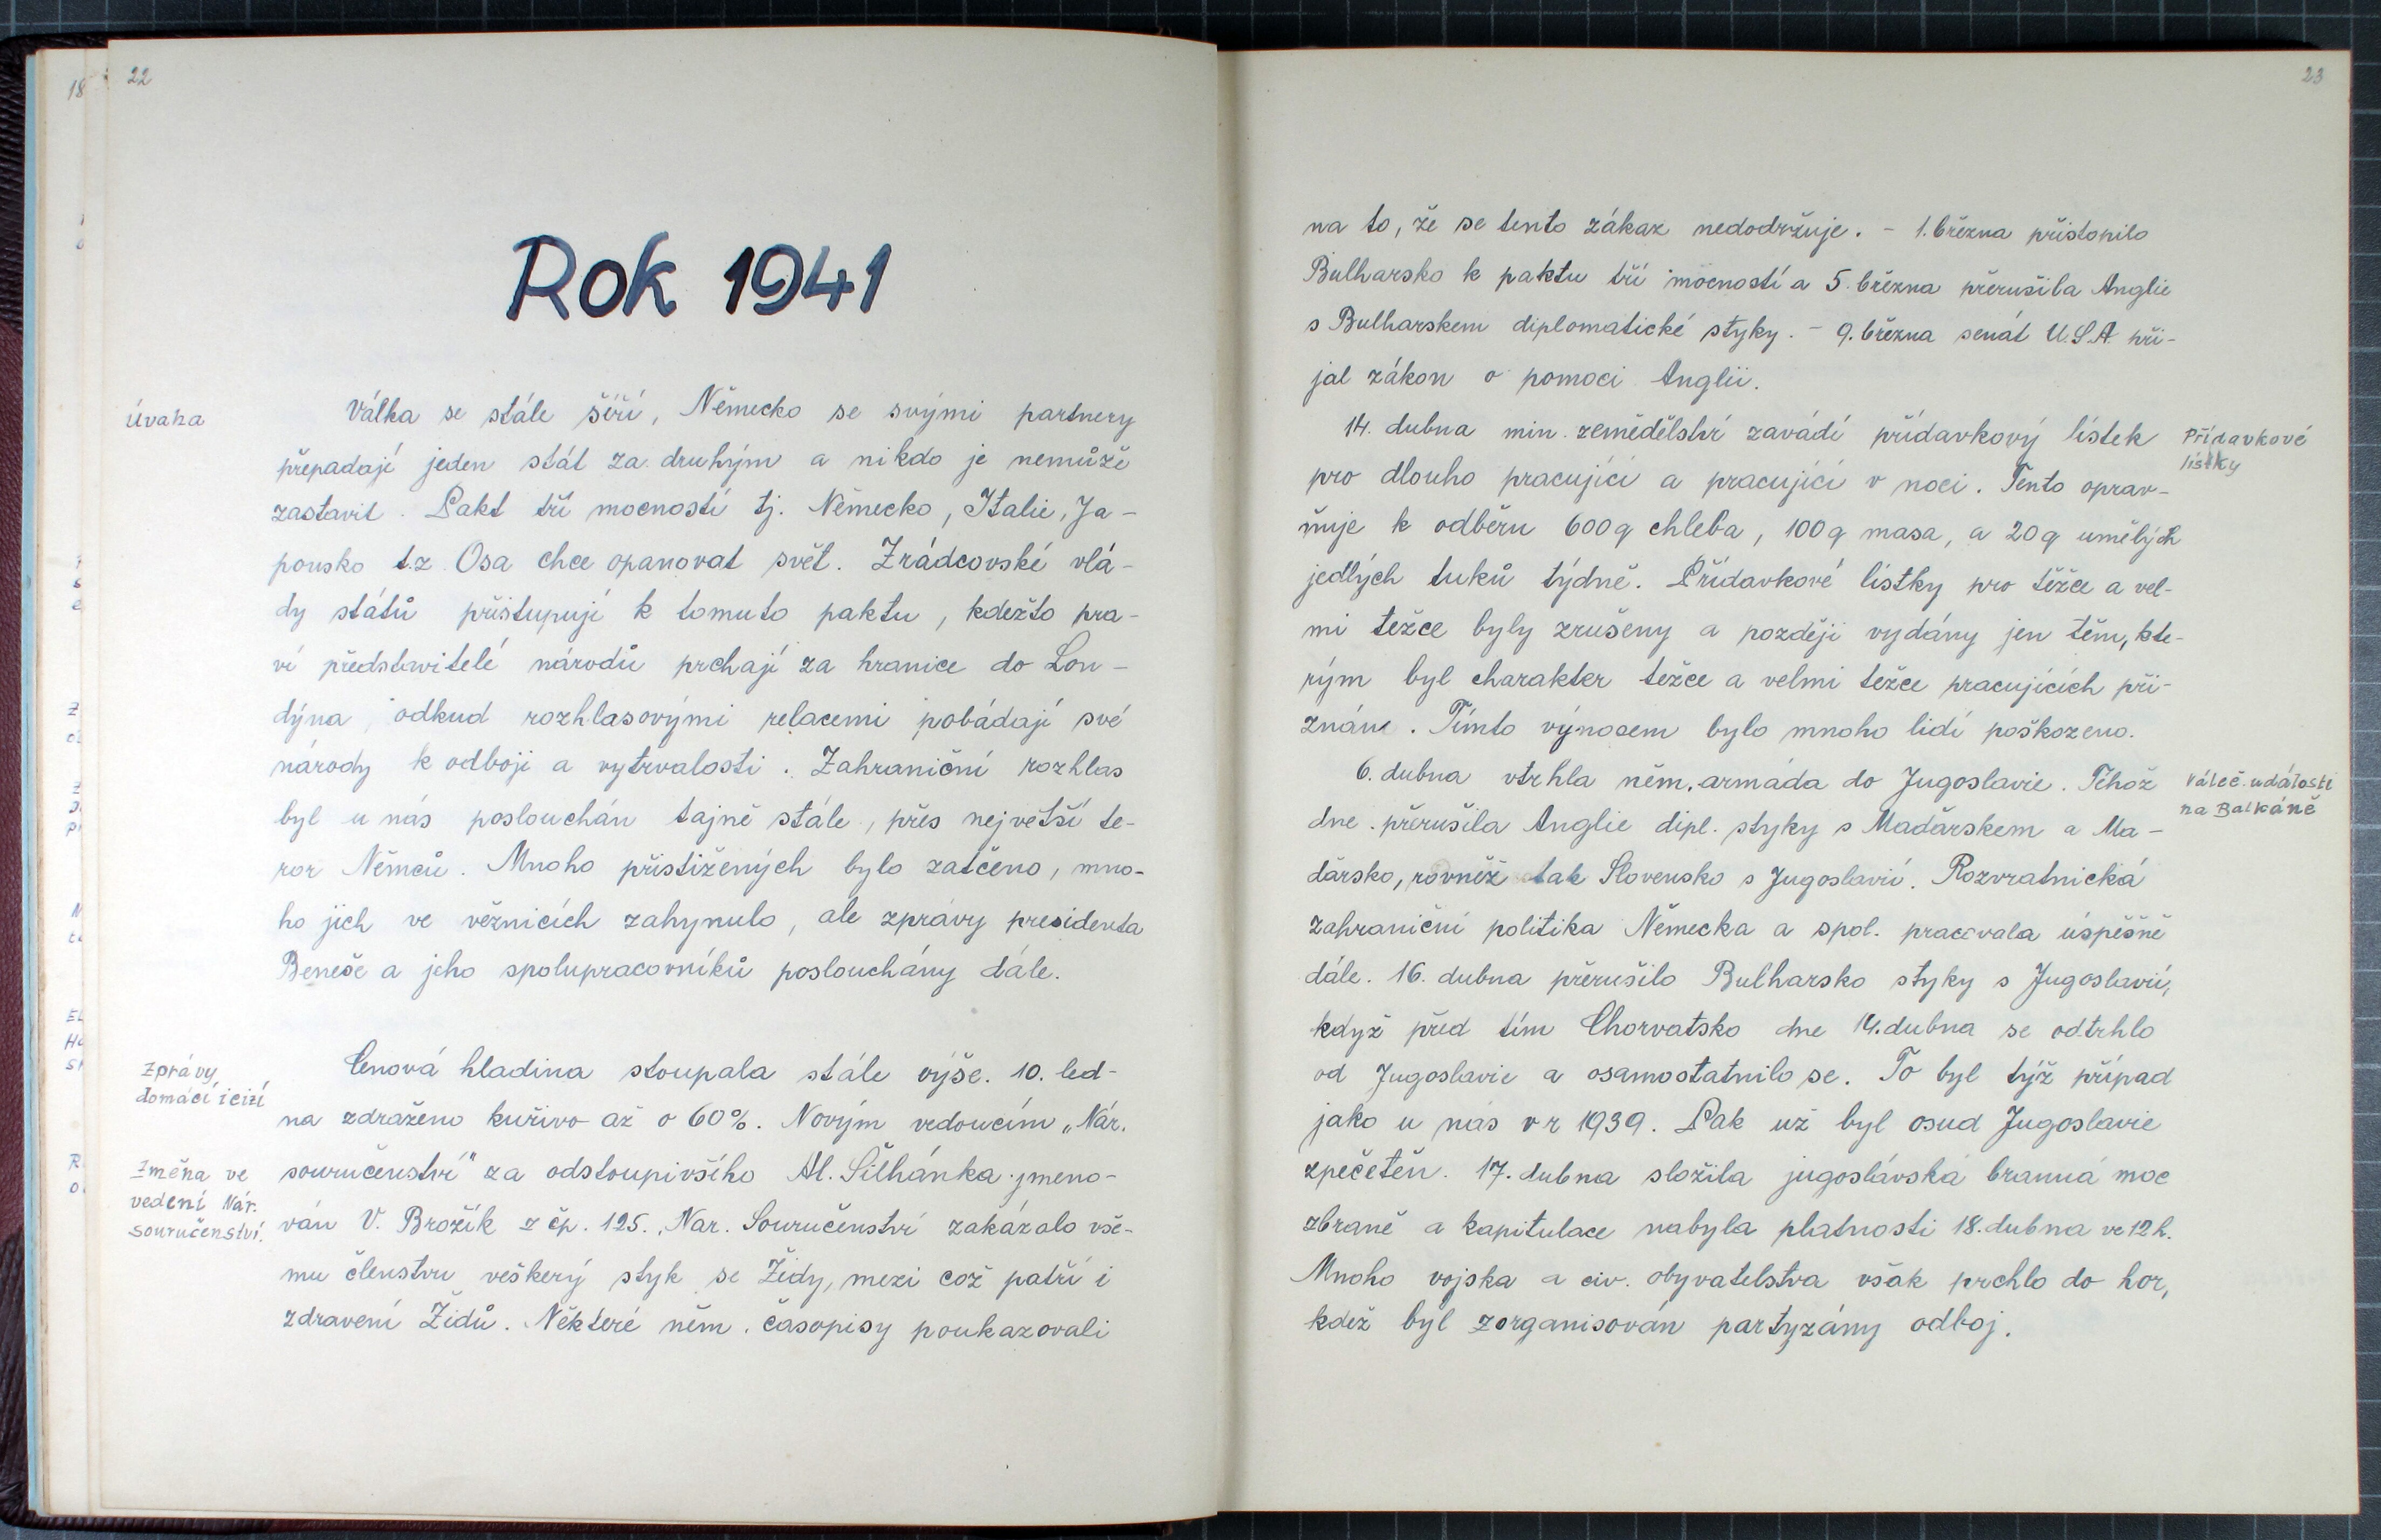 22
Rok 1941
Úvaha
Válka se stále šíří, Německo se svými partnery
přepadají jeden stát za druhým a nikdo je nemůže
zastavit. Pakt tří mocností tj. Německo, Italie, Ja-
ponsko t.z. Osa chce opanovat svět. Zrádcovské vlá-
dy států přistupují k tomuto paktu, kdežto pra-
ví představitelé národů prchají za hranice do Lon-
dýna, odkud rozhlasovými relacemi pobádají své
národy k odboji a vytrvalosti. Zahraniční rozhlas
byl u nás poslouchán tajně stále, přes největší te-
ror Němců. Mnoho přistižených bylo zatčeno, mno-
ho jich ve věznicích zahynulo, ale zprávy presidenta
Beneše a jeho spolupracovníků poslouchány dále.
Zprávy
domácí i cizí
Cenová hladina stoupala stále výše. 10. led-
na zdraženo kuřivo až o 60%. Novým vedoucím „Nár.
Změna ve
vedení Nár.
souručenství.
souručenství" za odstoupivšího Al. Šilhánka jmeno-
ván V. Brožík z čp. 125. Nar. Souručenství zakázalo vše-
mu členstvu veškerý styk se Židy, mezi což patří i
zdravení Židů. Některé něm. časopisy poukazovali
23
na to, že se tento zákaz nedodržuje. - 1. března přistopilo
Bulharsko k paktu tří mocností a 5. března přerušila Anglie
s Bulharskem diplomatické styky. - 9. března senát U.S.A při-
jal zákon o pomoci Anglii.
14. dubna min. zemědělství zavádí přídavkový lístek
Přídavkové
lístky
pro dlouho pracující a pracující v noci. Tento oprav-
ňuje k odběru 600g chleba, 100g masa, a 20g umělých
jedlých tuků týdně. Přídavkové lístky pro těžce a vel-
mi těžce byly zrušeny a později vydány jen těm, kte-
rým byl charakter težce a velmi težce pracujících při-
znán. Tímto výnosem bylo mnoho lidí poškozeno.
6. dubna vtrhla něm. armáda do Jugoslavie. Téhož
Váleč. události
na Balkáně
dne přerušila Anglie dipl. styky s Maďarskem a Ma-
ďarsko, rovněž tak Slovensko s Jugoslavií. Rozvratnická
zahraniční politika Německa a spol. pracovala úspěšně
dále. 16. dubna přerušilo Bulharsko styky s Jugoslavií,
když před tím Chorvatsko dne 14. dubna se odtrhlo
od Jugoslavie a osamostatnilo se. To byl týž případ
jako u nás v r 1939. Pak už byl osud Jugoslavie
zpečetěn. 17. dubna složila jugoslávská branná moc
zbraně a kapitulace nabyla platnosti 18. dubna ve 12 h.
Mnoho vojska a civ. obyvatelstva však prchlo do hor,
kdež byl zorganisován partyzány odboj.